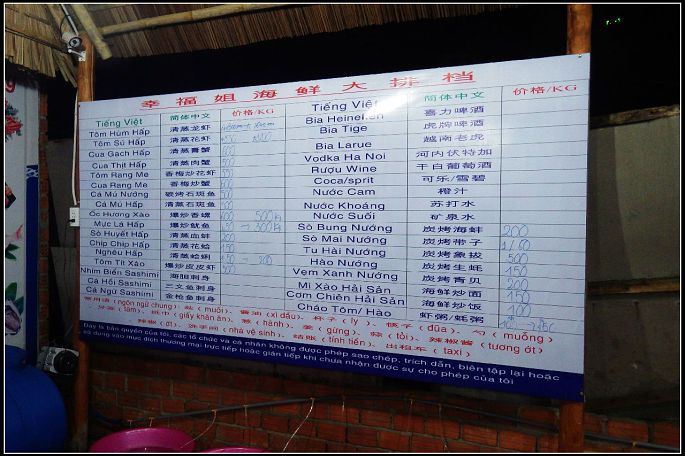 幸福姐海鲜大排档
Tiếng Việt 简体中文 价格/KG Tiếng Việt 简体中文 价格/KG
Tôm Hùm Hấp 清蒸龙虾 Bia Heineken 喜力啤酒
Tôm Sú Hấp 清蒸花虾 Bia Tige 虎牌啤酒
Cua Gạch Hấp 清蒸膏蟹 Bia Larue 越南老虎
Cua Thịt Hấp 清蒸肉蟹 Vodka Ha Noi 河内伏特加
Tôm Rang Me 香梅炒花虾 Rượu Wine 干白葡萄酒
Cua Rang Me 香梅炒蟹 Coca/sprit 可乐/雪碧
Cá Mú Nướng 碳烤石斑鱼 Nước Cam 橙汁
Cá Mú Hấp 清蒸石斑鱼 Nước Khoáng 苏打水
Ốc Hương Xào 爆炒香螺 500k Nước Suối 矿泉水
Mực Lá Hấp 爆炒鱿鱼 Sò Bung Nướng 炭烤海蚌 200
Sò Huyết Hấp 清蒸血蚶 Sò Mai Nướng 炭烤带子
Chíp Chíp Hấp 清蒸花蛤 Tu Hài Nướng 炭烤象拔 500
Nghêu Hấp 清蒸蛤蜊 Hào Nướng 炭烤生蚝 150
Tôm Tít Xào 爆炒皮皮虾 Vẹm Xanh Nướng 炭烤青贝 200
Nhím Biển Sashimi 海胆刺身 Mì Xào Hải Sản 海鲜炒面 150
Cá Hồi Sashimi 三文鱼刺身 Cơm Chiên Hải Sản 海鲜炒饭 100
Cá Ngừ Sashimi 金枪鱼刺身 Cháo Tôm/ Hào 虾粥/蚝粥
常用语 (ngôn ngữ chung) 盐 (muối), 酱油 (xì dầu), 杯子 (ly), 筷子 (đũa), 勺 (muỗng)
(tăm), 纸巾 (giấy khăn ăn), 葱 (hành), 姜 (gừng), 蒜 (tỏi), 辣椒酱 (tương ớt)
辣椒 (ớt), 洗手间 (nhà vệ sinh), 结账 (tính tiền), 出租车 (taxi)
Đây là bản quyền của tôi, các tổ chức và cá nhân không được phép sao chép, trích dẫn, biên tập lại hoặc
sử dụng vào mục đích thương mại trực tiếp hoặc gián tiếp khi chưa nhận được sự cho phép của tôi